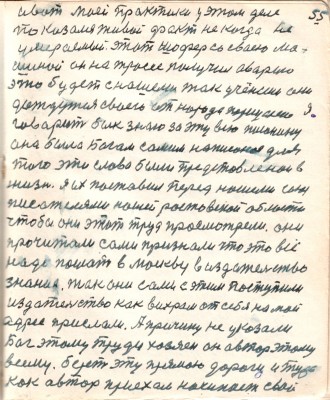 55
а вот моей практики у этом деле
показался живой факт некогда не
умераемый. этот шофер со своею ма-
шиной он на трассе получил аварию
это будет с нашеми так учёными они
дождутся своего от народа порицание я.
говорит бых знаю за эту всю тишину
она была Богом самим написоная для
того эти слова были представленои в
жизнь. Я их поставил перед нашеми сов
писателями нашей ростовской области
чтобы они этот труд просмотрели. они
прочитали сами признали что это всё
надо послать в москву в издательство
знания. так они сами с этим поступили
издательство как вихрам от себя на мой
адрес прислали. А причину не указали
Бог этому труду хозяен он автор этому
всему. берет эту прямою дорогу и туда
как автор приехал начинает свой